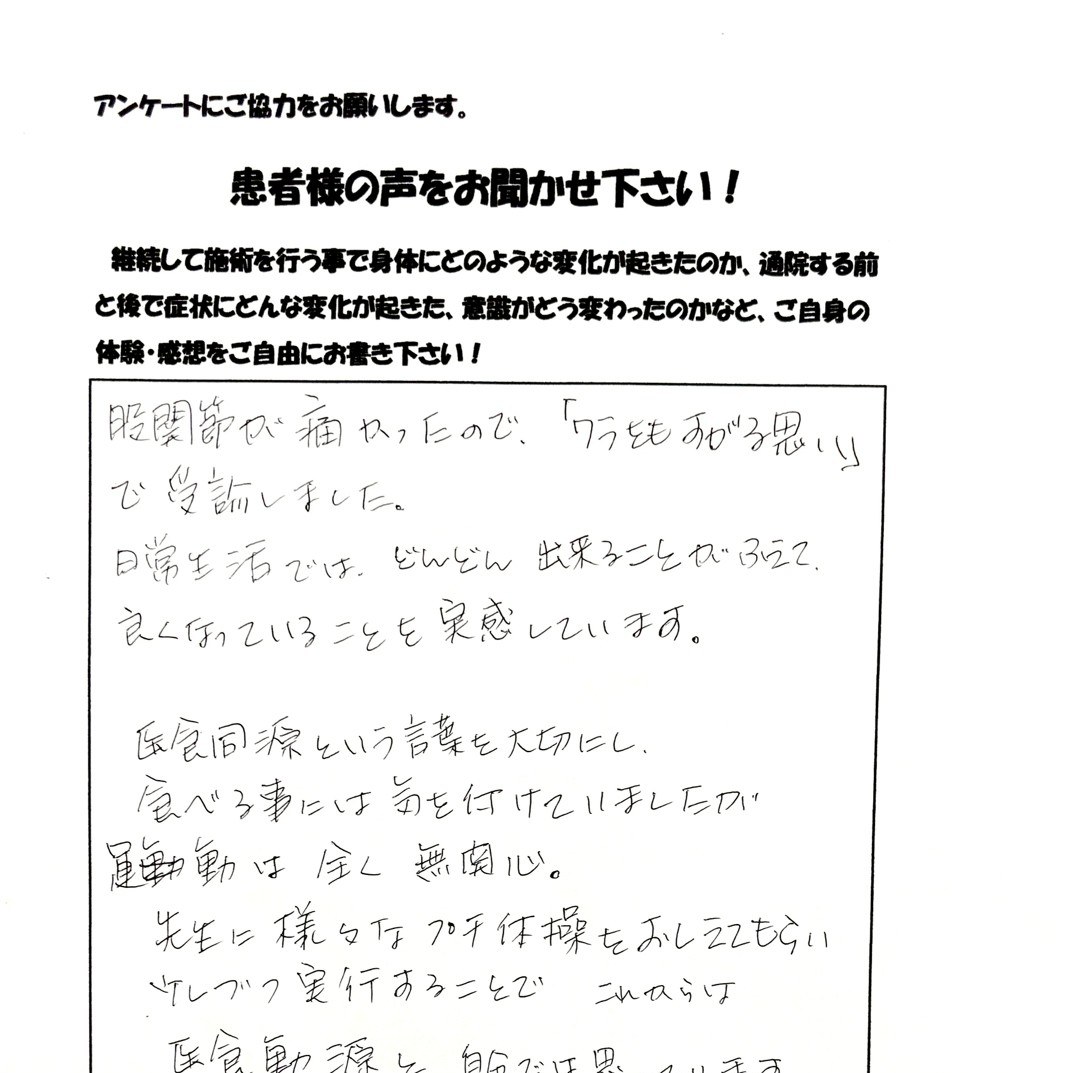 アンケートにご協力をお願いします。
患者様の声をお聞かせ下さい!
継続して施術を行う事で身体にどのような変化が起きたのか、通院する前
と後で症状にどんな変化が起きた、意識がどう変わったのかなど、ご自身の
体験・感想をご自由にお書き下さい!
股関節が痛かったので、「ワラをもすがる思い」
で受診しました。
日常生活では、どんどん出来ることがふえて、
良くなっていることを実感しています。
医食同源という言葉を大切にし、
食べる事には気を付けていましたが
運動は全く無関心。
先生に様々なプチ体操をおしえてもらい
少しづつ実行することで これからは
医食動源と 自分では思っています